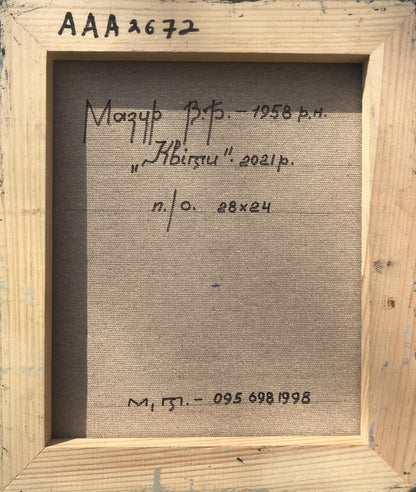 AAA2672
Мазур В.Ф. – 1958 р.н.
„Квіти". 2021р.
п./о. 28x24
м, т. – 095 698 1998